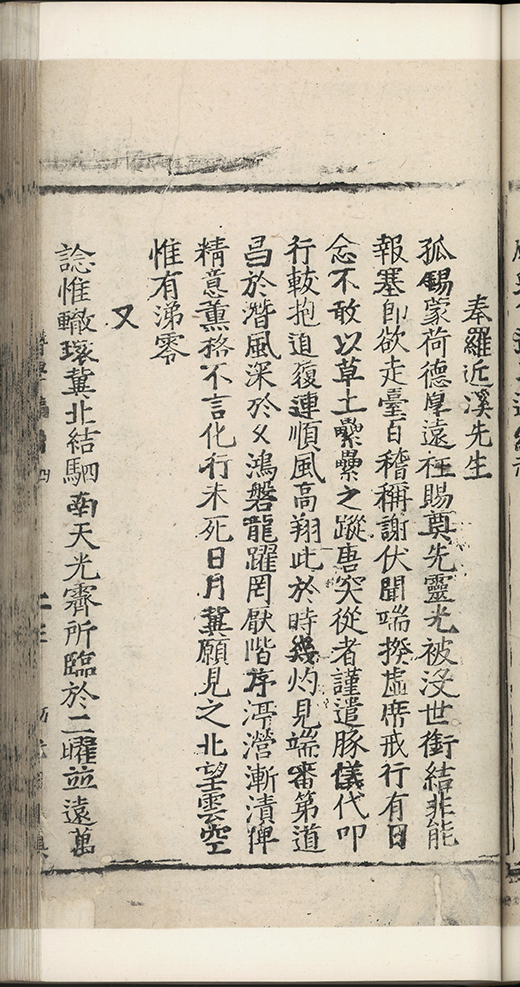 奉羅近溪先生
孤錫蒙荷德厚遠枉賜奠先靈光被沒世銜結非能
報塞即欲走臺百稽稱謝伏聞端揆虛席戒行有日
念不敢以草土纍纍之蹤唐突從者謹遣豚儀代叩
行軷抱追復連順風高翔此於時幾灼見端審第道
昌於潛風深於乂鴻磐龍躍罔厭階序渟瀯漸漬俾
精意薰格不言化行未死日月冀願見之北望雲空
惟有涕零
又
諗惟轍環冀北結駟南天光霽所臨於二曜並遠萬